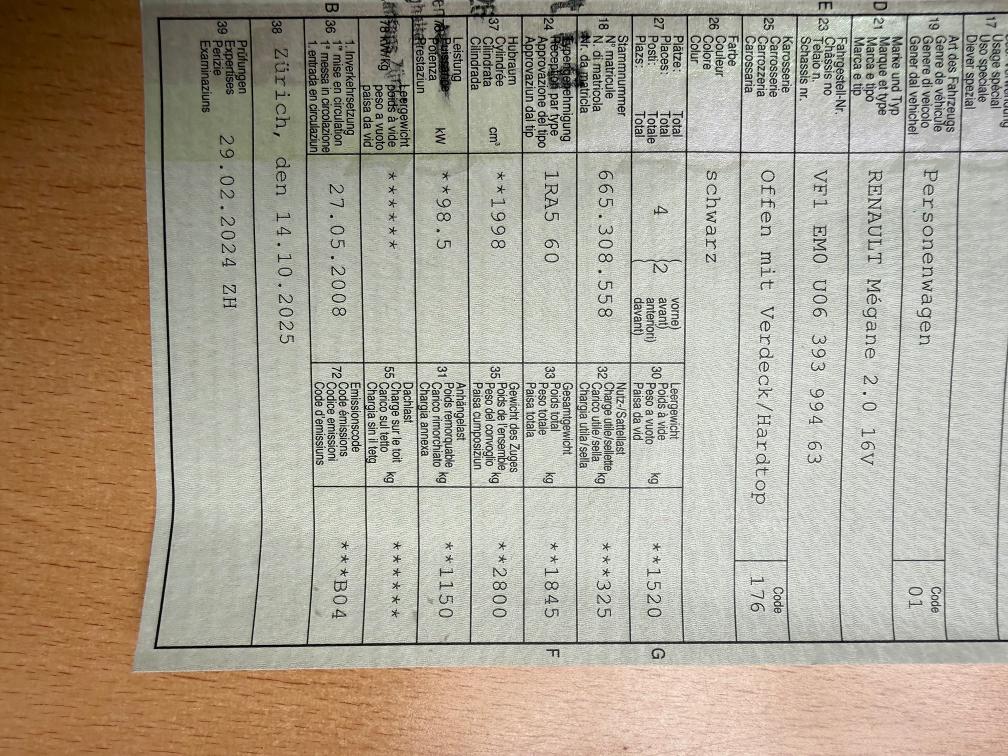 17
Usage spécial
Uso speziale
Diever spezial
Art des Fahrzeugs
19 Genre de véhicule
Genere di veicolo
Gener dal vehichel
Personenwagen
Code
01
D 21 Marke und Typ
Marque et type
Marca e tipo
Marca e tip
RENAULT Mégane 2.0 16V
E 23 Fahrgestell-Nr.
Châssis no
Telaio n.
Schassis nr.
VF1 EM0 U06 393 994 63
25 Karosserie
Carrosserie
Carrozzeria
Carossaria
Offen mit Verdeck/Hardtop
Code
176
26 Farbe
Couleur
Colore
Colur
schwarz
27 Plätze: Total
Places: Total
Posti: Totale
Plazs: Total
4 (2 vorne)
avant)
anteriori)
davant)
30 Leergewicht
Poids à vide
Peso a vuoto
Paisa da vid kg
**1520 G
18 Stammnummer
N° matricule
N. di matricola
Nr. da matricla
665.308.558
32 Nutz-/Sattellast
Charge utile/sellette
Carico utile/sella kg
Chargia utila/sella
***325
24 Typengenehmigung
Réception par type
Approvazione del tipo
Approvaziun dal tip
1RA5 60
33 Gesamtgewicht
Poids total
Peso totale kg
Paisa totala
**1845 F
37 Hubraum
Cylindrée
Cilindrata cm³
Cilindrada
**1998
35 Gewicht des Zuges
Poids de l'ensemble
Peso del convoglio kg
Paisa cumposiziun
**2800
Leistung
Puissance
Potenza kW
Prestaziun
**98.5
31 Anhängelast
Poids remorquable
Carico rimorchiato kg
Chargia annexa
**1150
Leergewicht
poids à vide
peso a vuoto
paisa da vid
******
55 Dachlast
Charge sur le toit
Carico sul tetto kg
Chargia sin il tetg
******
B 36 1. Inverkehrsetzung
1re mise en circulation
1a messa in circolazione
1. entrada en circulaziun
27.05.2008
72 Emissionscode
Code émissions
Codice emissioni
Code d'emissiuns
***B04
38 Zürich, den 14.10.2025
39 Prüfungen
Expertises
Perizie
Examinaziuns
29.02.2024 ZH